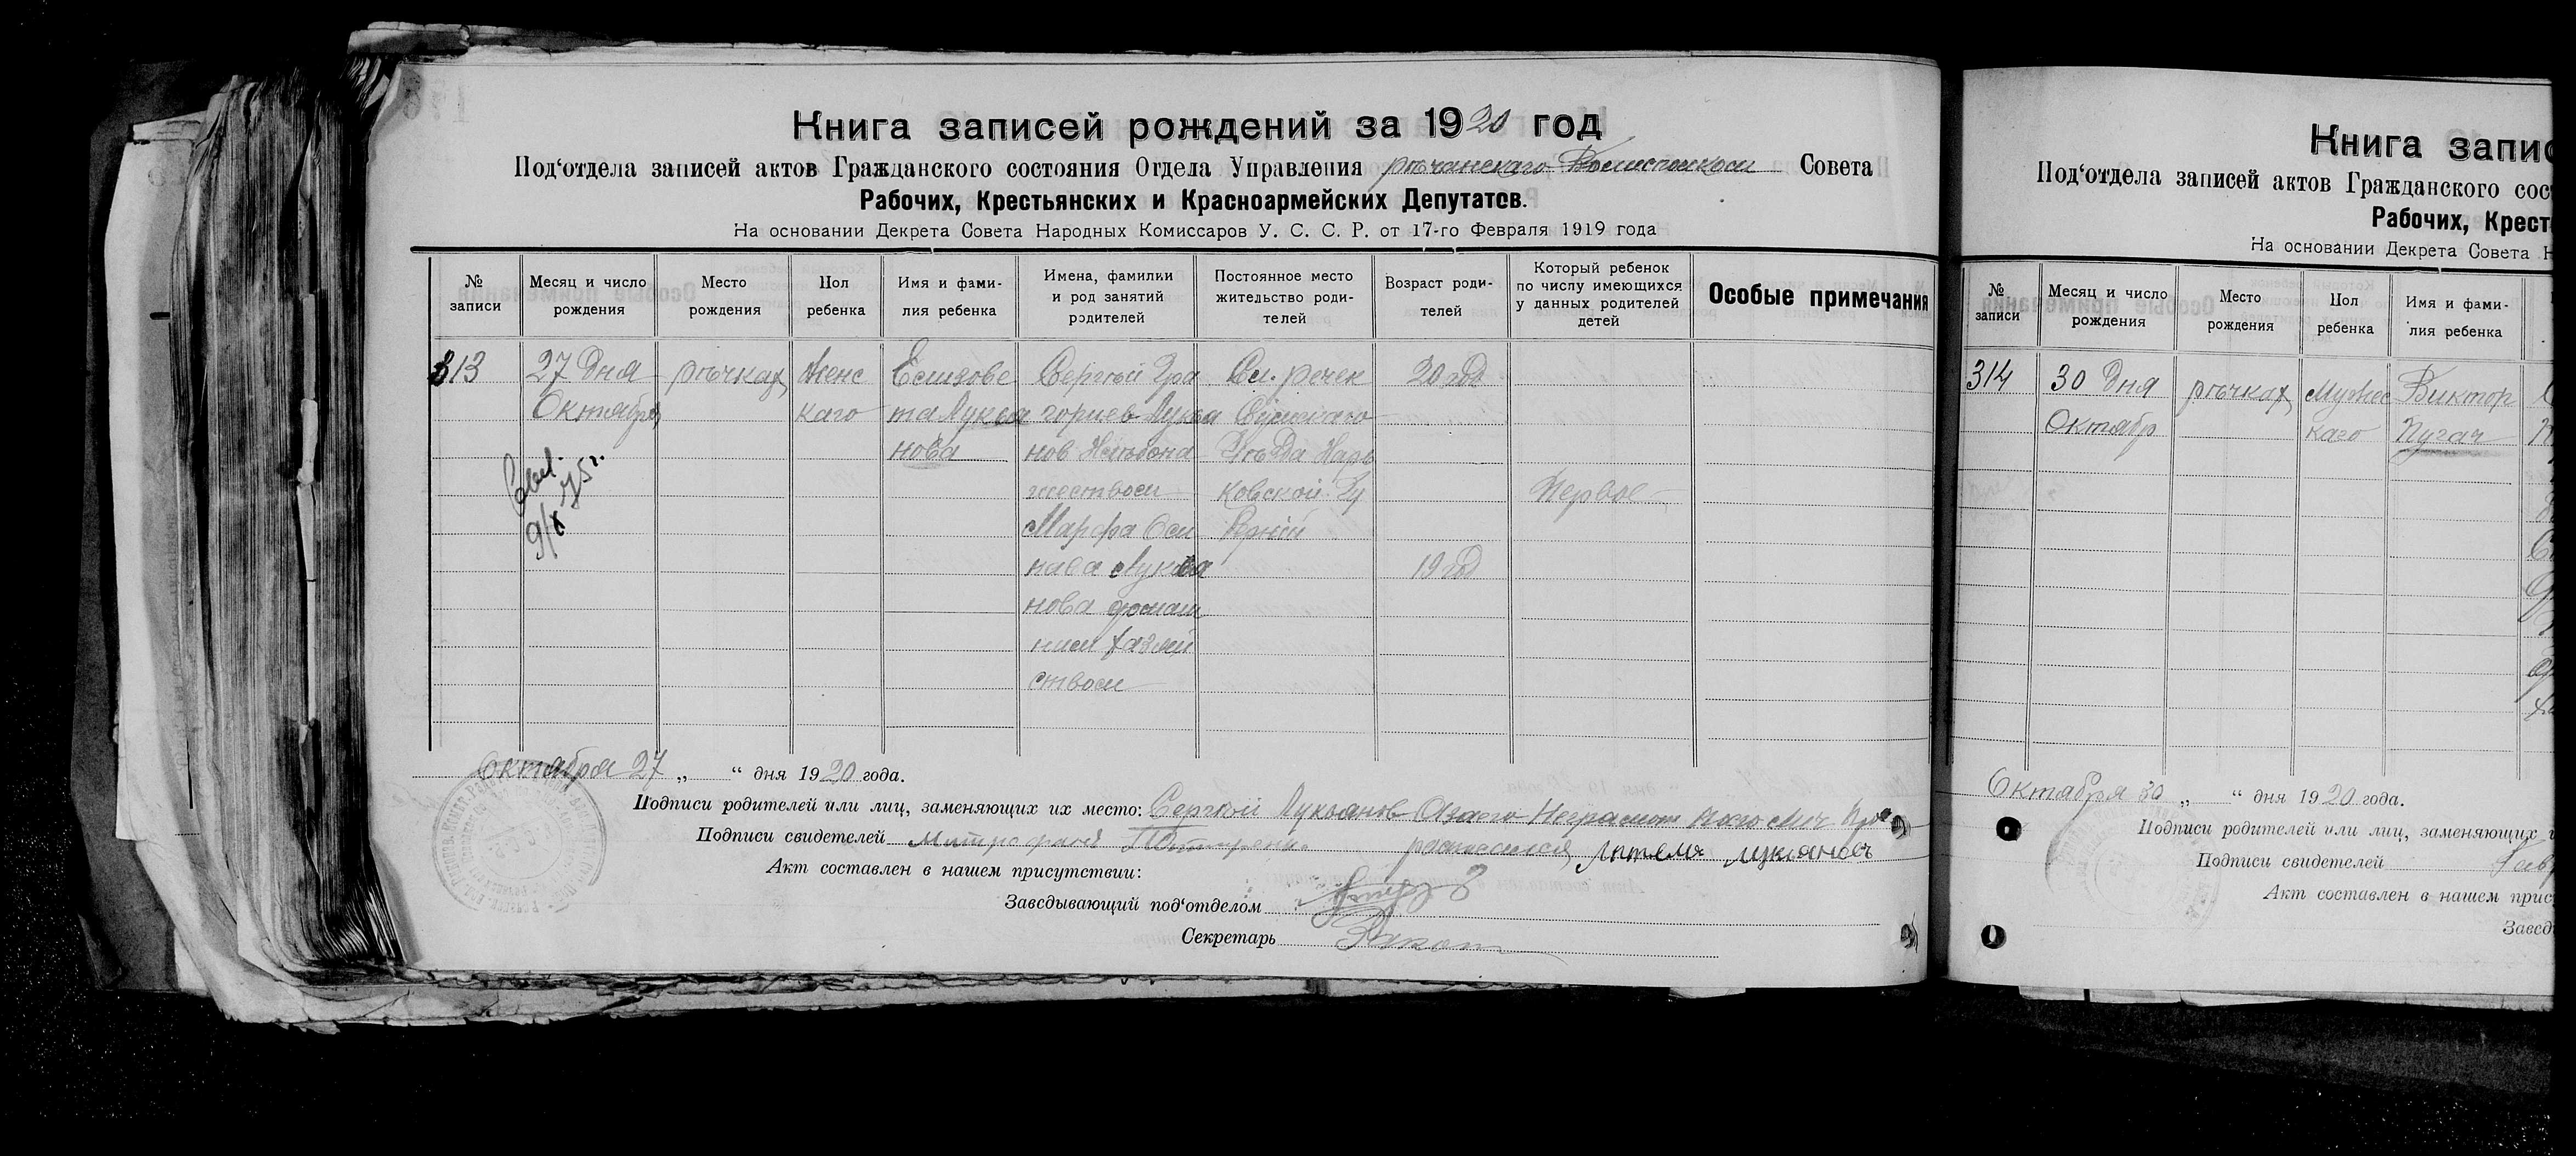 Книга записей рождений за 1920 год
Под'отдела записей актов Гражданского состояния Отдела Управления рѣчанскаго Совета
Рабочих, Крестьянских и Красноармейских Депутатов.
На основании Декрета Совета Народных Комиссаров У. С. С. Р. от 17-го Февраля 1919 года
№ записи
Месяц и число рождения
Место рождения
Пол ребенка
Имя и фами-
лия ребенка
Имена, фамилии
и род занятий
родителей
Постоянное место
жительство роди-
телей
Возраст роди-
телей
Который ребенок
по числу имеющихся
у данных родителей
детей
Особые примечания
313
27 Дня
Октября
рѣчках
Женс
каго
Елизове
та Лукья
нова
Сергѣй Гри
горiев Лукья
нов Хлѣбопа
шеством
Марфа Оси
пава Лукья
нова домаш
ним хазяй
ством
Сл. речек
Сумскаго
Уѣзда Харь
ковской Гу
бернiи
20 год
19 год
Первое
9/X 75 г.
Октября 27 „ “ дня 1920 года.
Подписи родителей или лиц, заменяющих их место: Сергѣй Лукьянов
Подписи свидетелей Митрофанъ росписался Лукьяновъ
Акт составлен в нашем присутствии:
Заведывающий под'отделом
Секретарь
Книга запис
Под'отдела записей актов Гражданского сос
Рабочих, Крест
На основании Декрета Совета Н
№ записи
Месяц и число рождения
Место рождения
Пол ребенка
Имя и фами-
лия ребенка
314
30 Дня
Октябр
рѣчках
Мужес
каго
Виктор
Пугач
Октября 30 „ “ дня 1920 года.
Подписи родителей или лиц, заменяющих и
Подписи свидетелей
Акт составлен в нашем прис
Завед